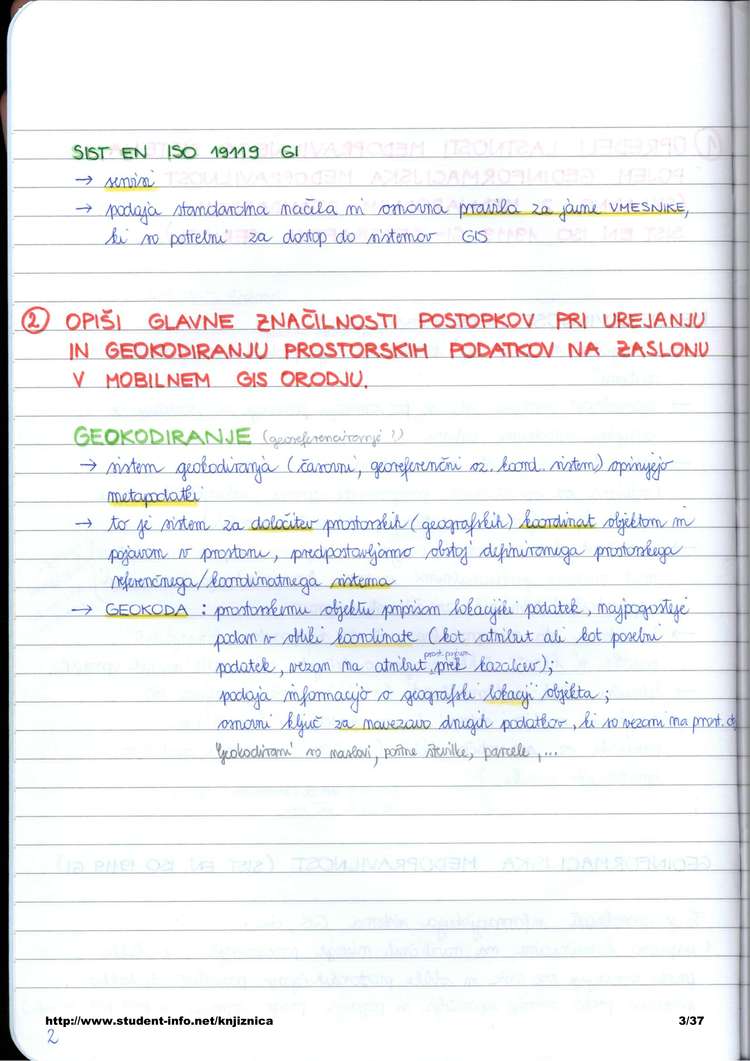 SIST EN ISO 19119 GI
→ servisi
→ podaja standardna načela in osnovna pravila za javne VMESNIKE,
ki so potrebni za dostop do sistemov GIS
② OPIŠI GLAVNE ZNAČILNOSTI POSTOPKOV PRI UREJANJU
IN GEOKODIRANJU PROSTORSKIH PODATKOV NA ZASLONU
V MOBILNEM GIS ORODJU.
GEOKODIRANJE (georeferenciranje?)
→ sistem geokodiranja (časovni, georeferenčni oz. koord. sistem) opisujejo
metapodatki
→ to je sistem za določitev prostorskih (geografskih) koordinat objektom in
pojavom v prostoru, predpostavljamo obstoj definiranega prostorskega
referenčnega/koordinatnega sistema
→ GEOKODA : prostorskemu objektu pripisan lokacijski podatek, najpogosteje
podan v obliki koordinate (kot atribut ali kot posebni
podatek, vezan na atribut prek kazalcev);
podaja informacijo o geografski lokaciji objekta ;
osnovni ključ za navezavo drugih podatkov, ki so vezani na prost. 
Geokodirani so naslovi, poštne številke, parcele, ...
http://www.student-info.net/knjiznica
3/37
2